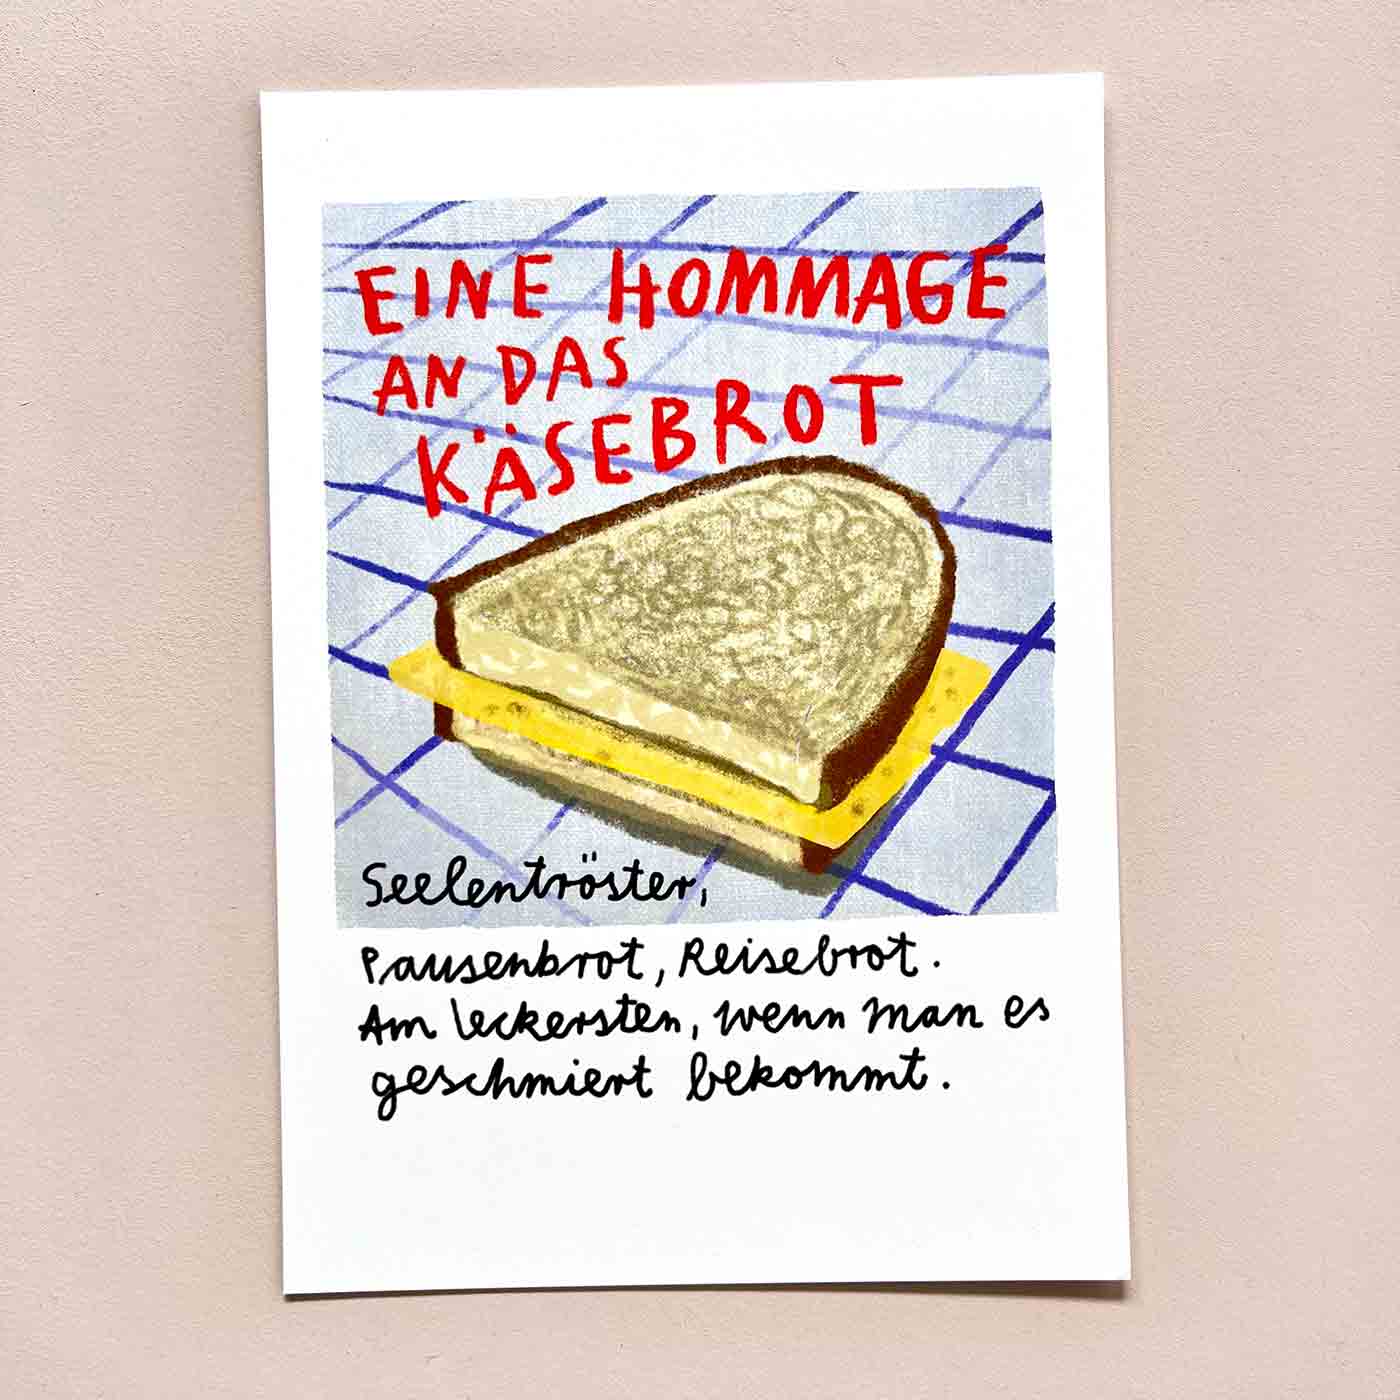 EINE HOMMAGE
AN DAS
KÄSEBROT
Seelentröster,
Pausenbrot, Reisebrot.
Am leckersten, wenn man es
geschmiert bekommt.